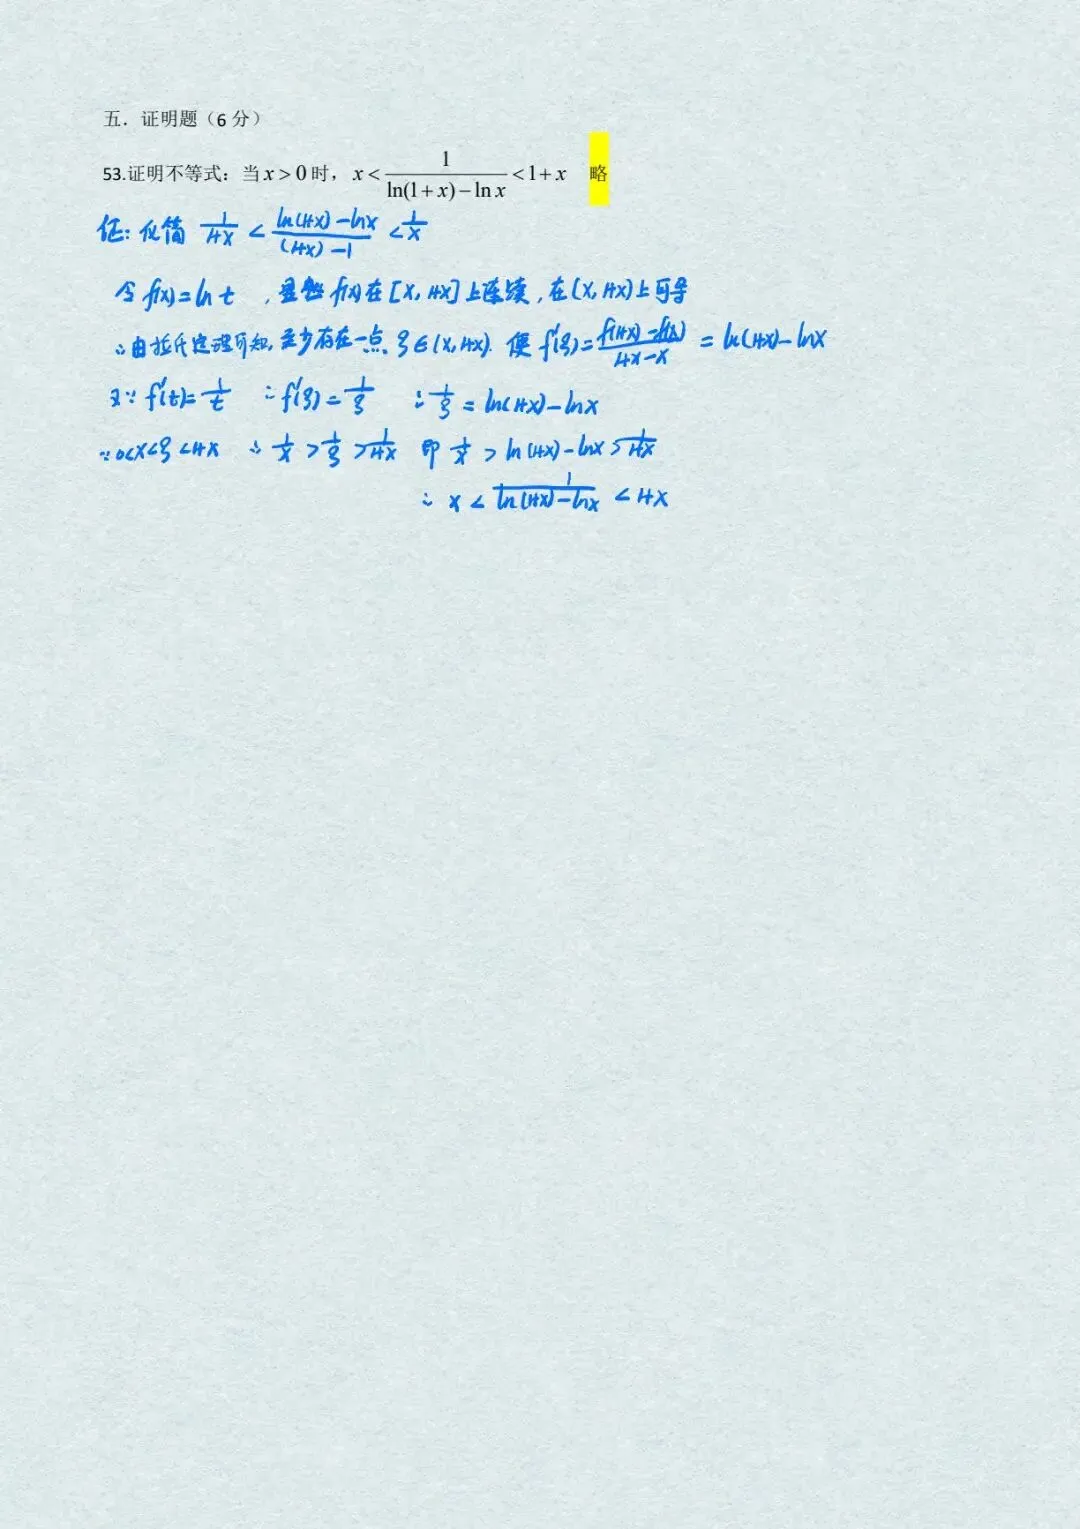 五．证明题（6 分）
53.证明不等式：当 x > 0 时， x < \frac{1}{\ln(1+x)-\ln x} < 1+x 略
证: 化简 \frac{1}{1+x} < \frac{\ln(1+x)-\ln x}{(1+x)-1} < \frac{1}{x}
令 f(x)=ln t , 显然 f(x)在 [x, 1+x] 上连续, 在(x, 1+x)上可导
∴由拉氏定理可知, 至少存在一点 ξ∈(x, 1+x). 使 f'(ξ)=\frac{f(1+x)-f(x)}{1+x-x} = ln(1+x)-lnx
又∵ f'(t)=\frac{1}{t} ∴ f'(ξ)=\frac{1}{ξ} ∴ \frac{1}{ξ} = ln(1+x)-lnx
∵ 0<x<ξ<1+x ∴ \frac{1}{x} > \frac{1}{ξ} > \frac{1}{1+x} 即 \frac{1}{x} > ln(1+x)-lnx > \frac{1}{1+x}
∴ x < \frac{1}{ln(1+x)-lnx} < 1+x